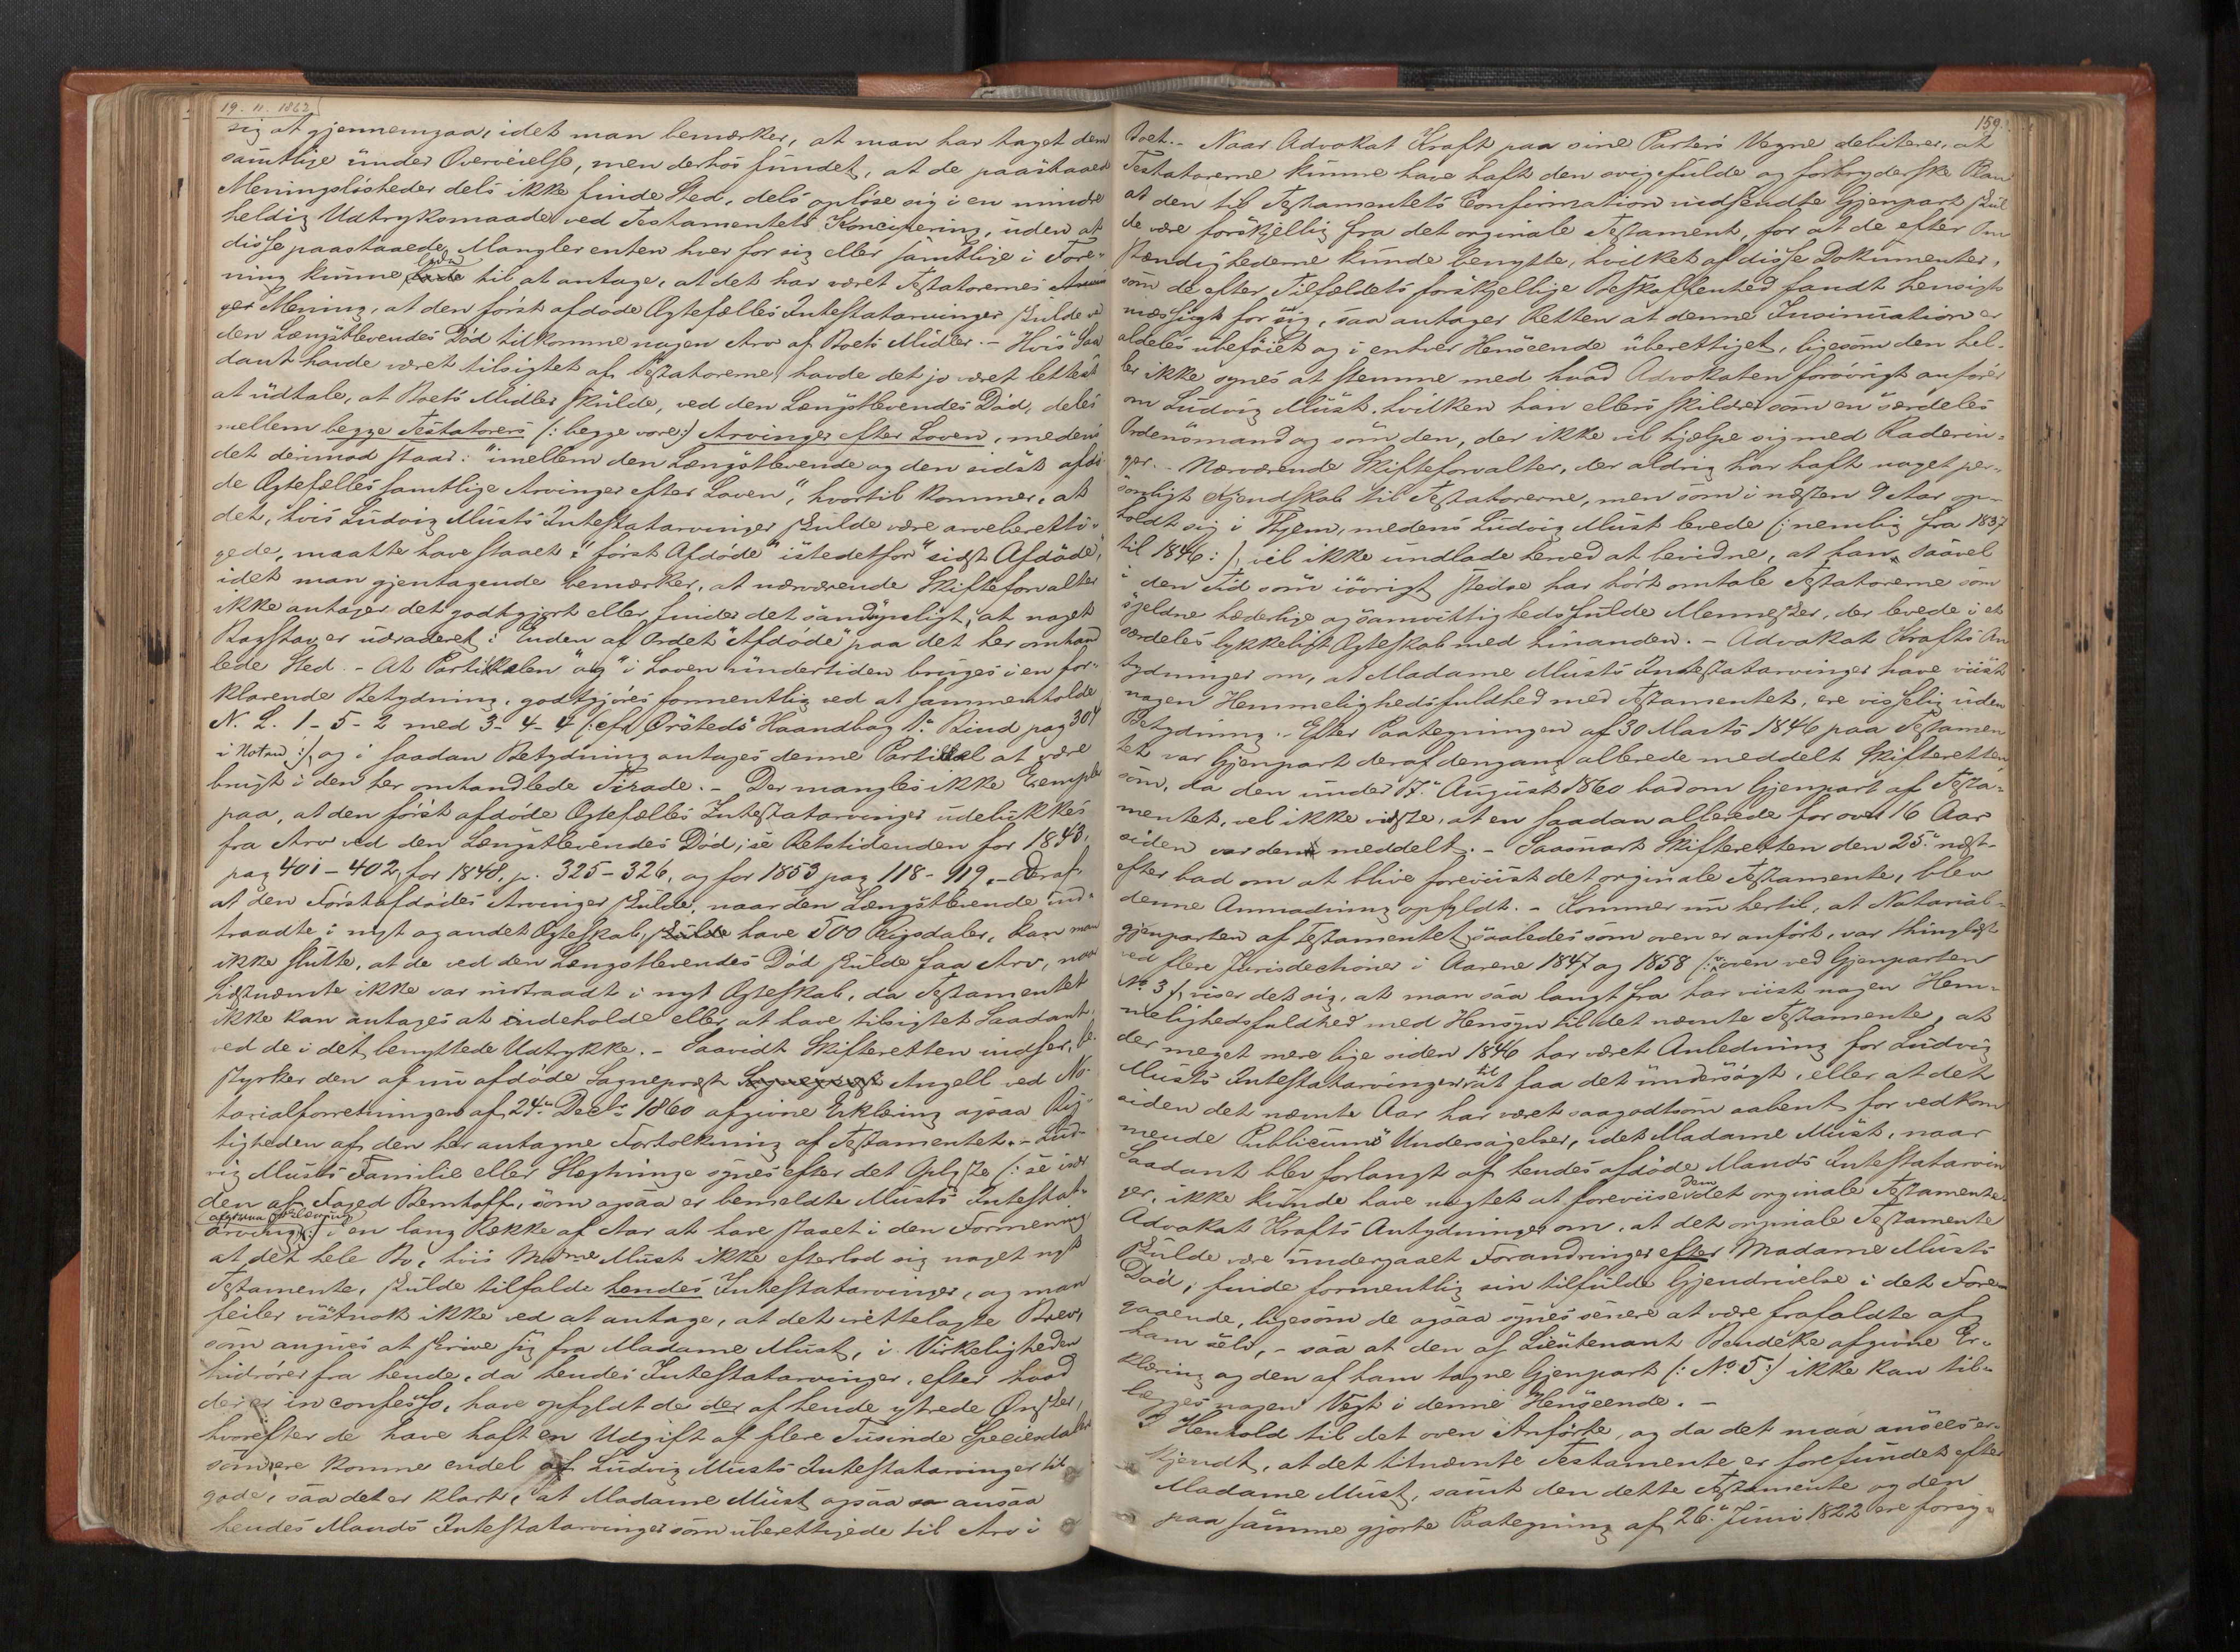 19. 11. 1862
sig at gjennemgaa, idet man bemærker, at man har taget dem
samtlige under Overveielse, men derhos fundet, at de paastaaede
Meningsløsheder dels ikke finde Sted, dels opløse sig i en mindre
heldig Udtryksmaade ved Testamentets Koncipering, uden at
disse paastaaede Mangler enten hver for sig eller samtlige i Fore-
ning kunne lede til at antage, at det har været Testatorernes
ges Mening, at den først afdøde Ægtefælles Intestatarvinger skulde ved
den Længstlevendes Død tilkomme nogen Arv af Boets Midler. - Hvis Saa
dant havde været tilsigtet af Testatorerne, havde det jo været lettest
at udtale, at Boets Midler skulde, ved den Længstlevendes Død, deles
mellem begge Testatorers (: begge vore :) Arvinger efter Loven, medens
det derimod staar: "imellem den Længstlevende og den sidst afdø-
de Ægtefælles samtlige Arvinger efter Loven", hvortil kommer, at
det, hvis Ludvig Musts Intestatarvinger skulde være arveberetti-
gede, maatte have staaet: "først Afdøde" istedetfor "sidst Afdøde",
idet man gjentagende bemærker, at nærværende Skifteforvalter
ikke antager det godtgjort eller finder det sandsynligt, at noget
Bogstav er udraderet i Enden af Ordet "Afdøde" paa det her omhand
lede Sted. - At Partikelen "og" i Loven undertiden bruges i en for-
klarende Betydning, godtgjøres formentlig ved at sammenholde
N. L. 1-5-2 med 3-4-4 (: cfr Ørsteds Haandbog 1ste Bind pag 304
i Noten :), og i saadan Betydning antages denne Partikel at være
brugt i den her omhandlede Tirade. - Der mangles ikke Exempler
paa, at den først afdøde Ægtefælles Intestatarvinger udelukkes
fra Arv ved den Længstlevendes Død, se Retstidenden for 1843,
pag 401-402, for 1848, p. 325-326, og for 1853 pag 118-119. - Deraf
at den Førstafdødes Arvinger skulde, naar den Længstlevende ind-
traadte i nyt og andet Ægteskab, skulde have 500 Rigsdaler, kan man
ikke slutte, at de ved den Længstlevendes Død skulde faa Arv, naar
Sidstnævnte ikke var indtraadt i nyt Ægteskab, da Testamentet
ikke kan antages at indeholde eller at have tilsigtet Saadant,
ved de i det benyttede Udtrykke. - Saavidt Skifteretten indser, be-
styrker den af nu afdøde Sogneprest Sogneprest Angell ved No-
tarialforretningen af 24de Decbr 1860 afgivne Erklæring ogsaa Rig-
tigheden af den her antagne Fortolkning af Testamentet. - Lud-
vig Musts Familie eller Slegtninge synes efter det Oplyste (: se især
den af Foged Bernhoff, som ogsaa er bemeldte Musts Intestat-
arving afgivne Forklaring :) i en lang Række af Aar at have staaet i den Formening
at det hele Bo, hvis Madme Must ikke efterlod sig noget nyt
Testamente, skulde tilfalde hendes Intestatarvinger, og man
feiler vistnok ikke ved at antage, at det irettelagte Brev,
som angives at skrive sig fra Madame Must, i Virkeligheden
hidrører fra hende, da hendes Intestatarvinger, efter hvad
der er in confesso, have opfyldt de der af hende ytrede Ønsker,
hvorefter de have haft en Udgift af flere Tusinde Speciesdaler
som ere komne endel af Ludvig Musts Intestatarvinger til
gode, saa det er klart, at Madame Must ogsaa ansaa
hendes Mands Intestatarvinger som uberettigede til Arv i
159.
Boet. - Naar Advokat Kraft paa sine Parters Vegne debiterer, at
Testatorerne kunne have haft den svigefulde og forbryderske Plan
at den til Testamentets Confirmation indsendte Gjenpart skul
de være forskjellig fra det orginale Testament, for at de efter Om
stændighederne kunde benytte, hvilket af disse Dokumenter,
som de efter Tilfældets forskjellige Beskaffenhed fandt hensigts
mæssigt for sig, saa antager Retten at denne Insinuation er
aldeles ubeføiet og i enhver Henseende uberettiget, ligesom den hel-
ler ikke synes at stemme med hvad Advokaten forøvrigt anfører
om Ludvig Must, hvilken han ellers skildrer som en særdeles
Ordensmand og som den, der ikke vil hjelpe sig med Raderin-
ger. - Nærværende Skifteforvalter, der aldrig har haft noget per-
sonligt Kjendskab til Testatorerne, men som i næsten 9 Aar op-
holdt sig i Thjem, medens Ludvig Must levede (: nemlig fra 1837
til 1846 :), vil ikke undlade herved at bevidne, at han, saavel
i den Tid som iøvrigt stedse har hørt omtale Testatorerne som
sjeldne hæderlige og samvittighedsfulde Mennesker, der levede i et
særdeles lykkeligt Ægteskab med hinanden. - Advokat Krafts An
tydninger om, at Madame Musts Intestatarvinger have viist
nogen Hemmelighedsfuldhed med Testamentet, ere visselig uden
Betydning. - Efter Paategningen af 30 Marts 1846 paa Testamen
tet var Gjenpart deraf dengang allerede meddelt Skifteretten
som, da den under 17de August 1860 bad om Gjenpart af Testa-
mentet, vel ikke vidste, at en saadan allerede for over 16 Aar
siden var den meddelt. - Saasnart Skifteretten den 25de næst-
efter bad om at blive foreviist det orginale Testamente, blev
denne Anmodning opfyldt. - Kommer nu hertil, at Notarial-
gjenparten af Testamentet, saaledes som oven er anført, var thinglyst
ved flere Jurisdectioner i Aarene 1847 og 1858 (: se oven ved Gjenparten
No 3 :), viser det sig, at man saa langt fra har viist nogen Hem-
melighedsfuldhed med Hensyn til det nævnte Testamente, at
der meget mere lige siden 1846 har været Anledning for Ludvig
Musts Intestatarvinger til at faa det undersøgt, eller at det
siden det nævnte Aar har været saagodtsom aabent for vedkom
mende Publicums Undersøgelser, idet Madame Must, naar
Saadant blev forlangt af hendes afdøde Mands Intestatarvin
ger, ikke kunde have negtet at forevise dem det orginale Testamente
Advokat Krafts Antydninger om, at det orginale Testamente
skulde være undergaaet Forandringer efter Madame Musts
Død, finde formentlig sin tilfulde Gjendrivelse i det Fore-
gaaende, ligesom de ogsaa synes senere at være frafaldte af
ham selv, - saa at den af Lieutenant Bendeke afgivne Er-
klæring og den af ham tagne Gjenpart (: No 5 :) ikke kan til-
lægges nogen Vegt i denne Henseende. -
I Henhold til det oven Anførte, og da det maa ansees er-
kjendt, at det titnævnte Testamente er forefundet efter
Madame Must, samt den dette Testamente og den
paa samme gjorte Paategning af 26de Juni 1822 ere forsy-